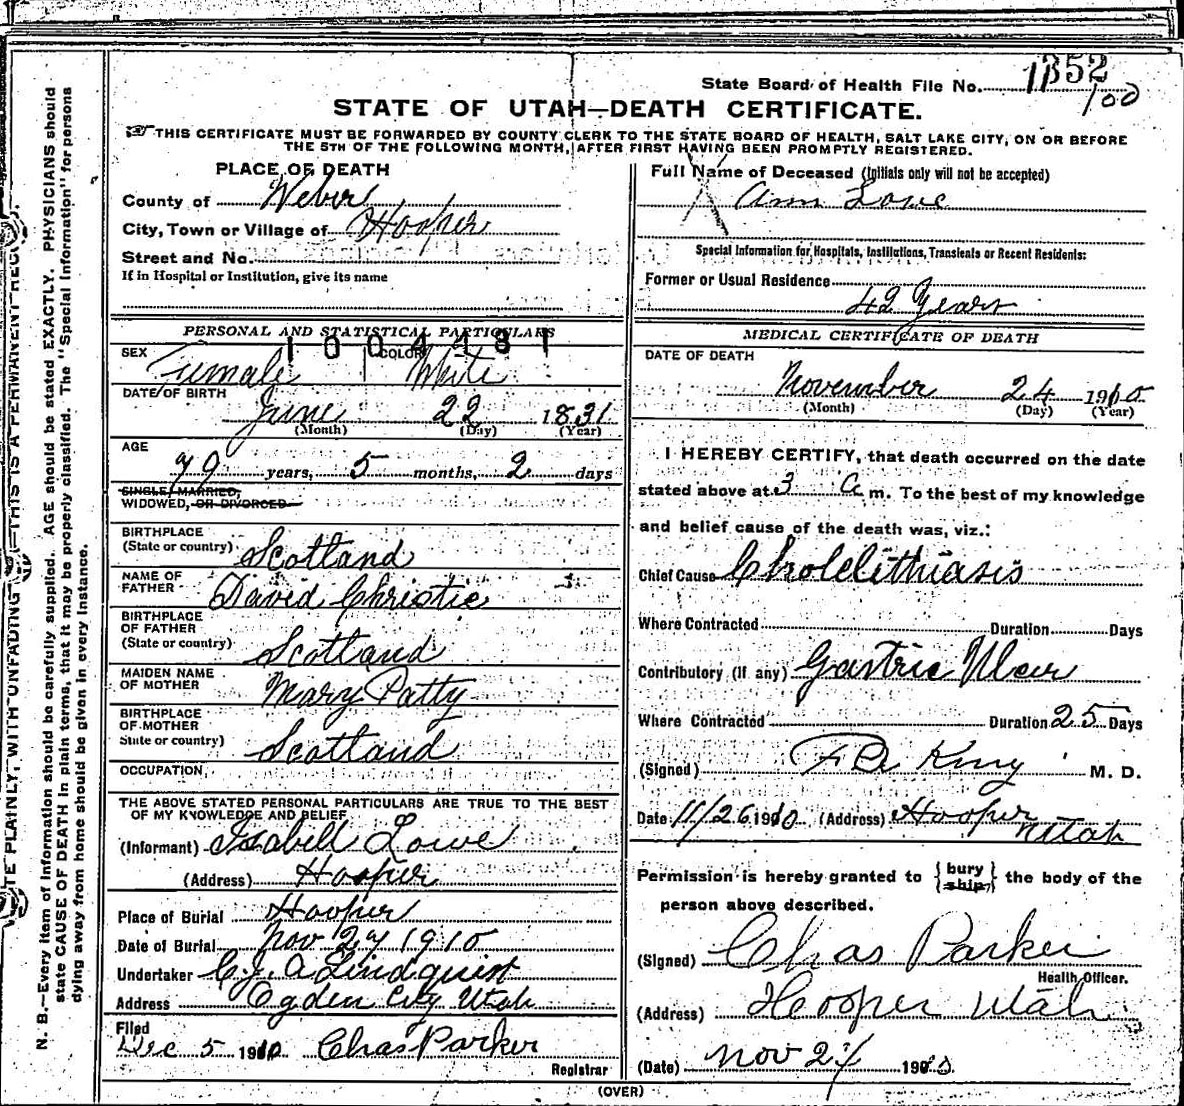 State Board of Health File No. 1352
100
STATE OF UTAH—DEATH CERTIFICATE.
THIS CERTIFICATE MUST BE FORWARDED BY COUNTY CLERK TO THE STATE BOARD OF HEALTH, SALT LAKE CITY, ON OR BEFORE
THE 5TH OF THE FOLLOWING MONTH, AFTER FIRST HAVING BEEN PROMPTLY REGISTERED.
PLACE OF DEATH
County of Weber
City, Town or Village of Hooper
Street and No.
If in Hospital or Institution, give its name
PERSONAL AND STATISTICAL PARTICULARS
1004181
SEX Female COLOR White
DATE OF BIRTH June 22 1831
(Month) (Day) (Year)
AGE
79 years, 5 months, 2 days
SINGLE, MARRIED,
WIDOWED, OR DIVORCED
BIRTHPLACE
(State or country) Scotland
NAME OF
FATHER David Christie
BIRTHPLACE
OF FATHER
(State or country) Scotland
MAIDEN NAME
OF MOTHER Mary Patty
BIRTHPLACE
OF MOTHER
State or country) Scotland
OCCUPATION
THE ABOVE STATED PERSONAL PARTICULARS ARE TRUE TO THE BEST
OF MY KNOWLEDGE AND BELIEF
(Informant) Isabell Lowe
(Address) Hooper
Place of Burial Hooper
Date of Burial Nov 27 1910
Undertaker C.J.A. Lindquist
Address Ogden City Utah
Filed
Dec 5 1910 Chas Parker
Registrar
Full Name of Deceased (Initials only will not be accepted)
Ann Lowe
Special Information for Hospitals, Institutions, Transients or Recent Residents:
Former or Usual Residence
42 Years
MEDICAL CERTIFICATE OF DEATH
DATE OF DEATH
November 24 1910
(Month) (Day) (Year)
I HEREBY CERTIFY, that death occurred on the date
stated above at 3 a m. To the best of my knowledge
and belief cause of the death was, viz.:
Chief Cause Cholelithiasis
Where Contracted Duration Days
Contributory (if any) Gastric Ulcer
Where Contracted Duration 25 Days
(Signed) King M. D.
Date 11/26 1910 (Address) Hooper
Utah
Permission is hereby granted to {bury
ship,} the body of the
person above described.
(Signed) Chas Parker
Health Officer.
(Address) Hooper Utah
(Date) Nov 27 1910.
(OVER)
N. B.—Every item of information should be carefully supplied. AGE should be stated EXACTLY. PHYSICIANS should
state CAUSE OF DEATH in plain terms, that it may be properly classified. The "Special Information" for persons
dying away from home should be given in every instance.
TE PLAINLY, WITH UNFADING THIS IS A PERMANENT RECORD.